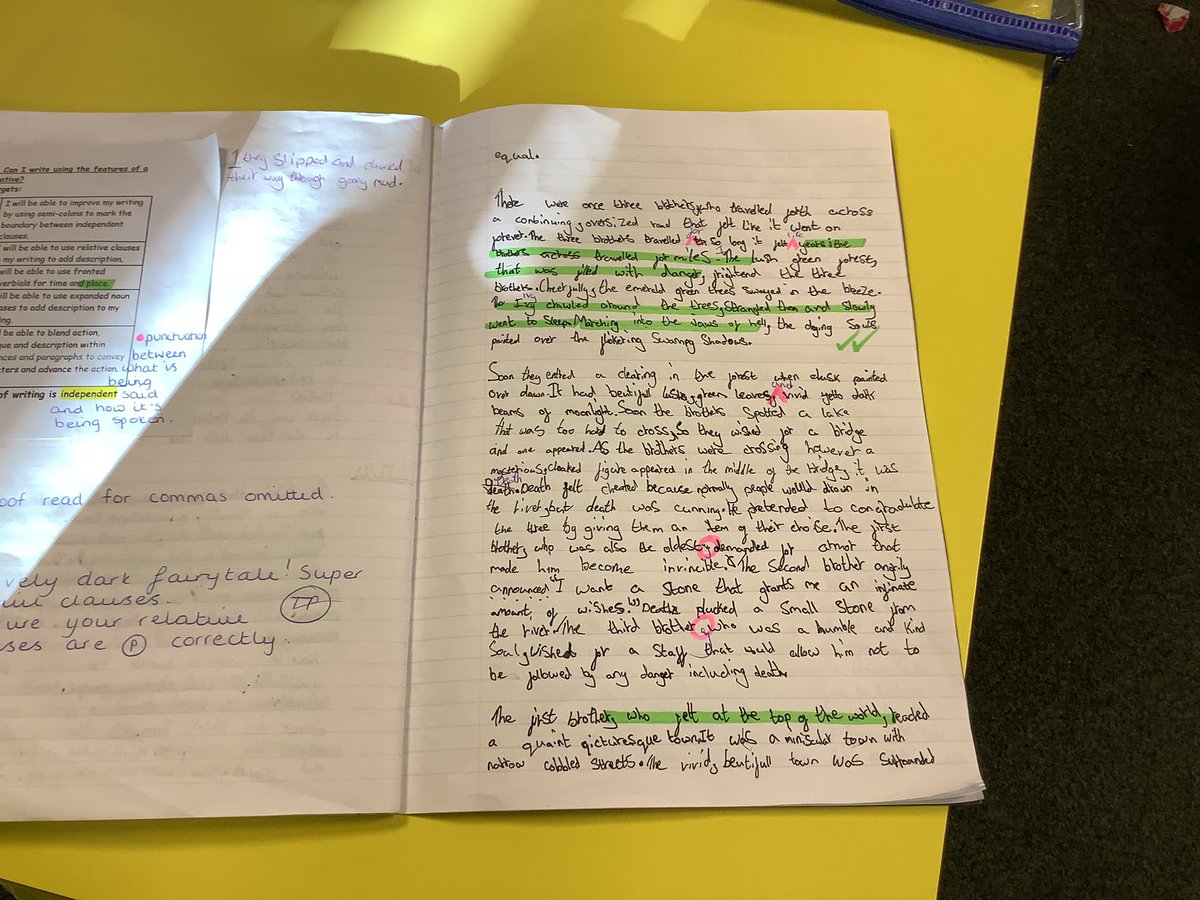 Can I write using the features of a
ative?
gets:
I will be able to improve my writing
by using semi-colons to mark the
boundary between independent
clauses.
I will be able to use relative clauses
my writing to add description.
will be able to use fronted
verbials for time and place.
will be able to use expanded noun
ases to add description to my
ng.
be able to blend action,
gue and description within
nces and paragraphs to convey
cters and advance the action.
of writing is independent
punctuation
between
what is
being
said
and how it's
being spoken.
they slipped and clawed
their way through gooey mud.
oof read for commas omitted.
vely dark fairytale! Super
clauses.
ure your relative
ses are P correctly.
equal.
There were once three brothers, who travelled forth across
a continuing, oversized road that felt like it went on
forever. The three brothers travelled for so long it felt like years; the
brothers across travelled for miles. The lush green forest,
that was filled with danger, frightend the three
brothers. Cheerfully, the emerald green trees swayed in the breeze.
The Ivy crawled around the trees, strangled them and slowly
went to sleep. Marching into the jaws of hell, the
painted over the flickering Swampy Shadows.
Soon they entred a clearing in the forest when dusk painted
over dawn. It had beutiful lush, green leaves, and vivid yets dark
beams of moonlight. Soon the brothers spotted a lake
that was too hard to cross, So they wished for a bridge
and one appeared. As the brothers were crossing however a
mysterious, cloaked figure appeared in the middle of the bridge, it was
death. Death felt cheated because normally people would drown in
the river, but death was cunning. He pretended to congradulate
the three by giving them an item of their choise. The first
brother, who was also the oldest, demanded for armor that
made him become invincible. The Second brother angrily
announced "I want a Stone that grants me an infinate
amount of wishes." Death plucked a Small Stone from
the river. The third brother, who was a humble and kind
Soul, wished for a Staff that would allow him not to
be followed by any danger including death.
The first brother, who felt at the top of the world, headed
a quaint picturesque town. It was a miniscular town with
narrow cobbled streets. The vivid, beutifull town was surrounded